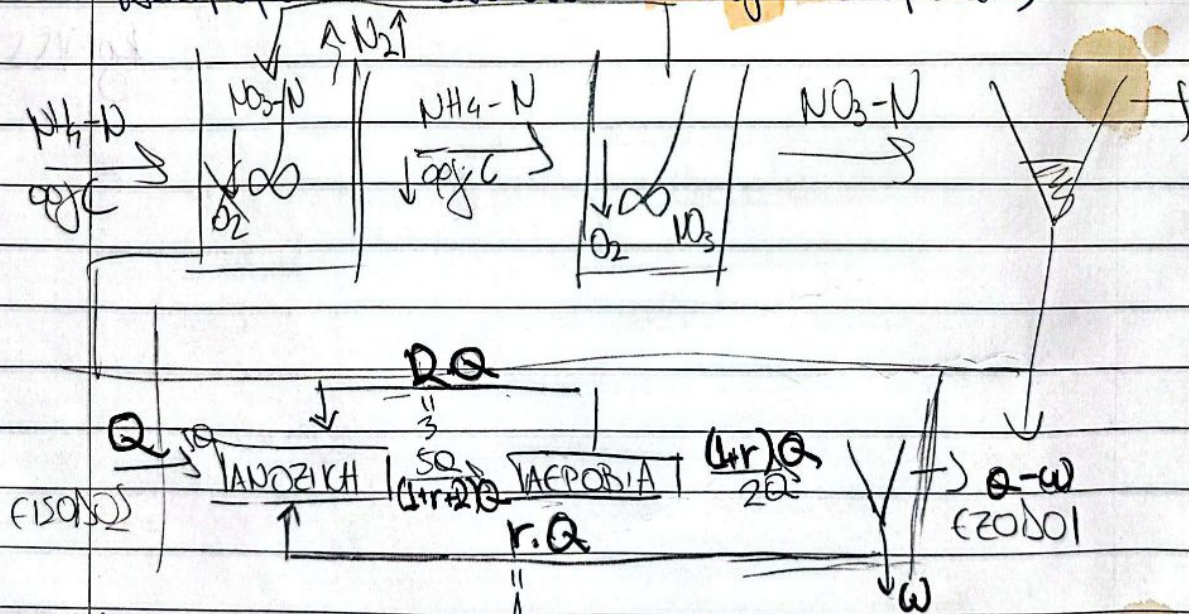 ↑ N2 ↑
NH4-N
οργ C
NO3-N
O2
NH4-N
↓ οργ C
O2
NO3
NO3-N
R.Q
"
3
Q
ΕΙΣΟΔΟΣ
ΑΝΟΞΙΚΗ
5Q
(1+r+R)Q
ΑΕΡΟΒΙΑ
(1+r)Q
2Q
Q-w
ΕΞΟΔΟΙ
r.Q
"
w